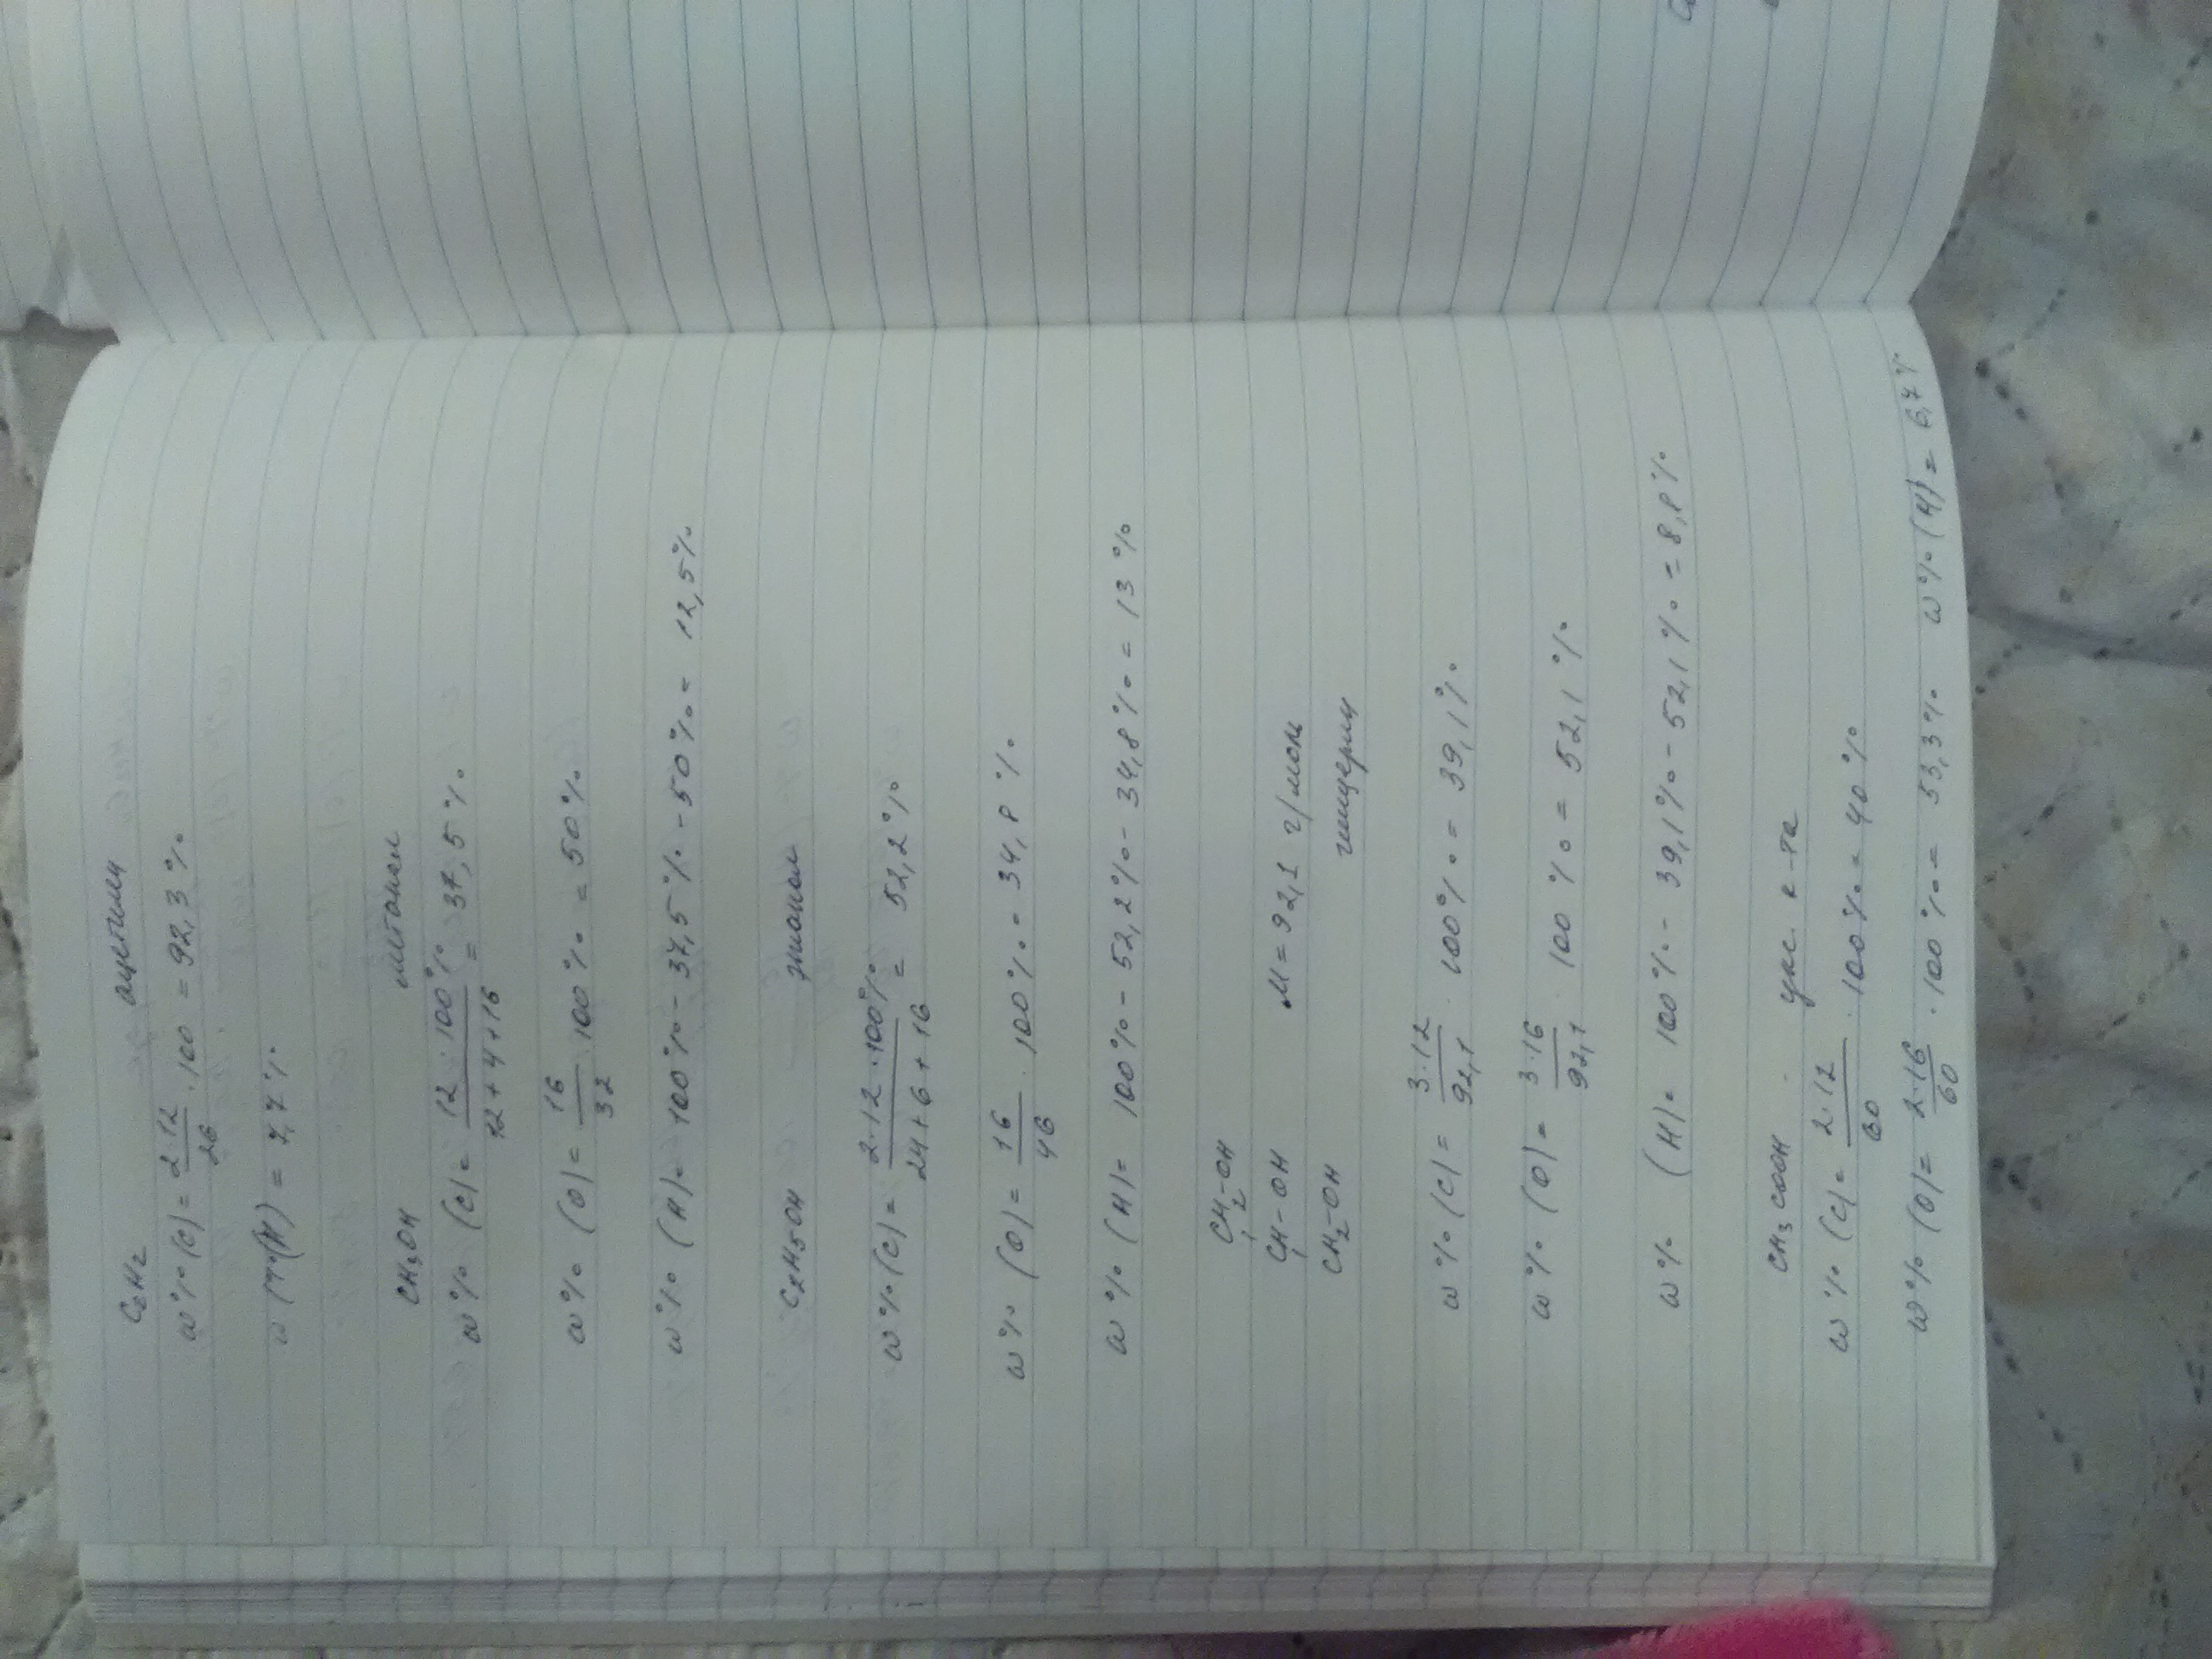 C₂H₂ ацетилен
ω%(C) = 2·12/26 · 100 = 92,3%
ω%(H) = 7,7%
CH₃OH метанол
ω% (C) = 12 · 100%/12+4+16 = 37,5%
ω% (O) = 16/32 · 100% = 50%
ω% (H) = 100% - 37,5% - 50% = 12,5%
C₂H₅OH этанол
ω%(C) = 2·12·100%/24+6+16 = 52,2%
ω% (O) = 16/46 · 100% = 34,8%
ω% (H) = 100% - 52,2% - 34,8% = 13%
CH₂-OH
CH-OH M = 92,1 г/моль
CH₂-OH глицерин
ω% (C) = 3·12/92,1 · 100% = 39,1%
ω% (O) = 3·16/92,1 · 100% = 52,1%
ω% (H) = 100% - 39,1% - 52,1% = 8,8%
CH₃COOH укс. к-та
ω% (C) = 2·12/60 · 100% = 40%
ω% (O) = 2·16/60 · 100% = 53,3% ω% (H) = 6,7%